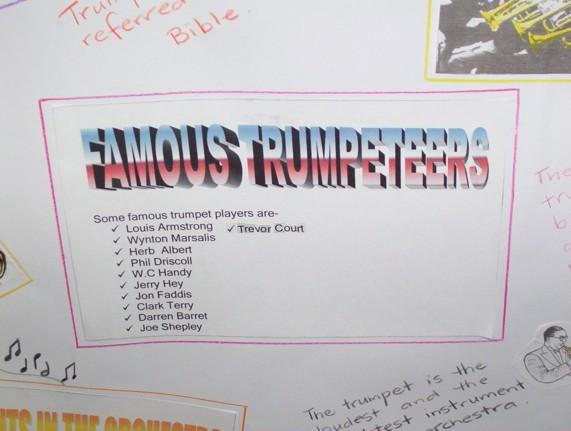 Trum
referred
Bible.
FAMOUS TRUMPETEERS
Some famous trumpet players are-
✓ Louis Armstrong ✓ Trevor Court
✓ Wynton Marsalis
✓ Herb Albert
✓ Phil Driscoll
✓ W.C Handy
✓ Jerry Hey
✓ Jon Faddis
✓ Clark Terry
✓ Darren Barret
✓ Joe Shepley
The
tru
b
The trumpet is the
loudest and the
test instrument
orchestra.
NTS IN THE ORCHESTRA